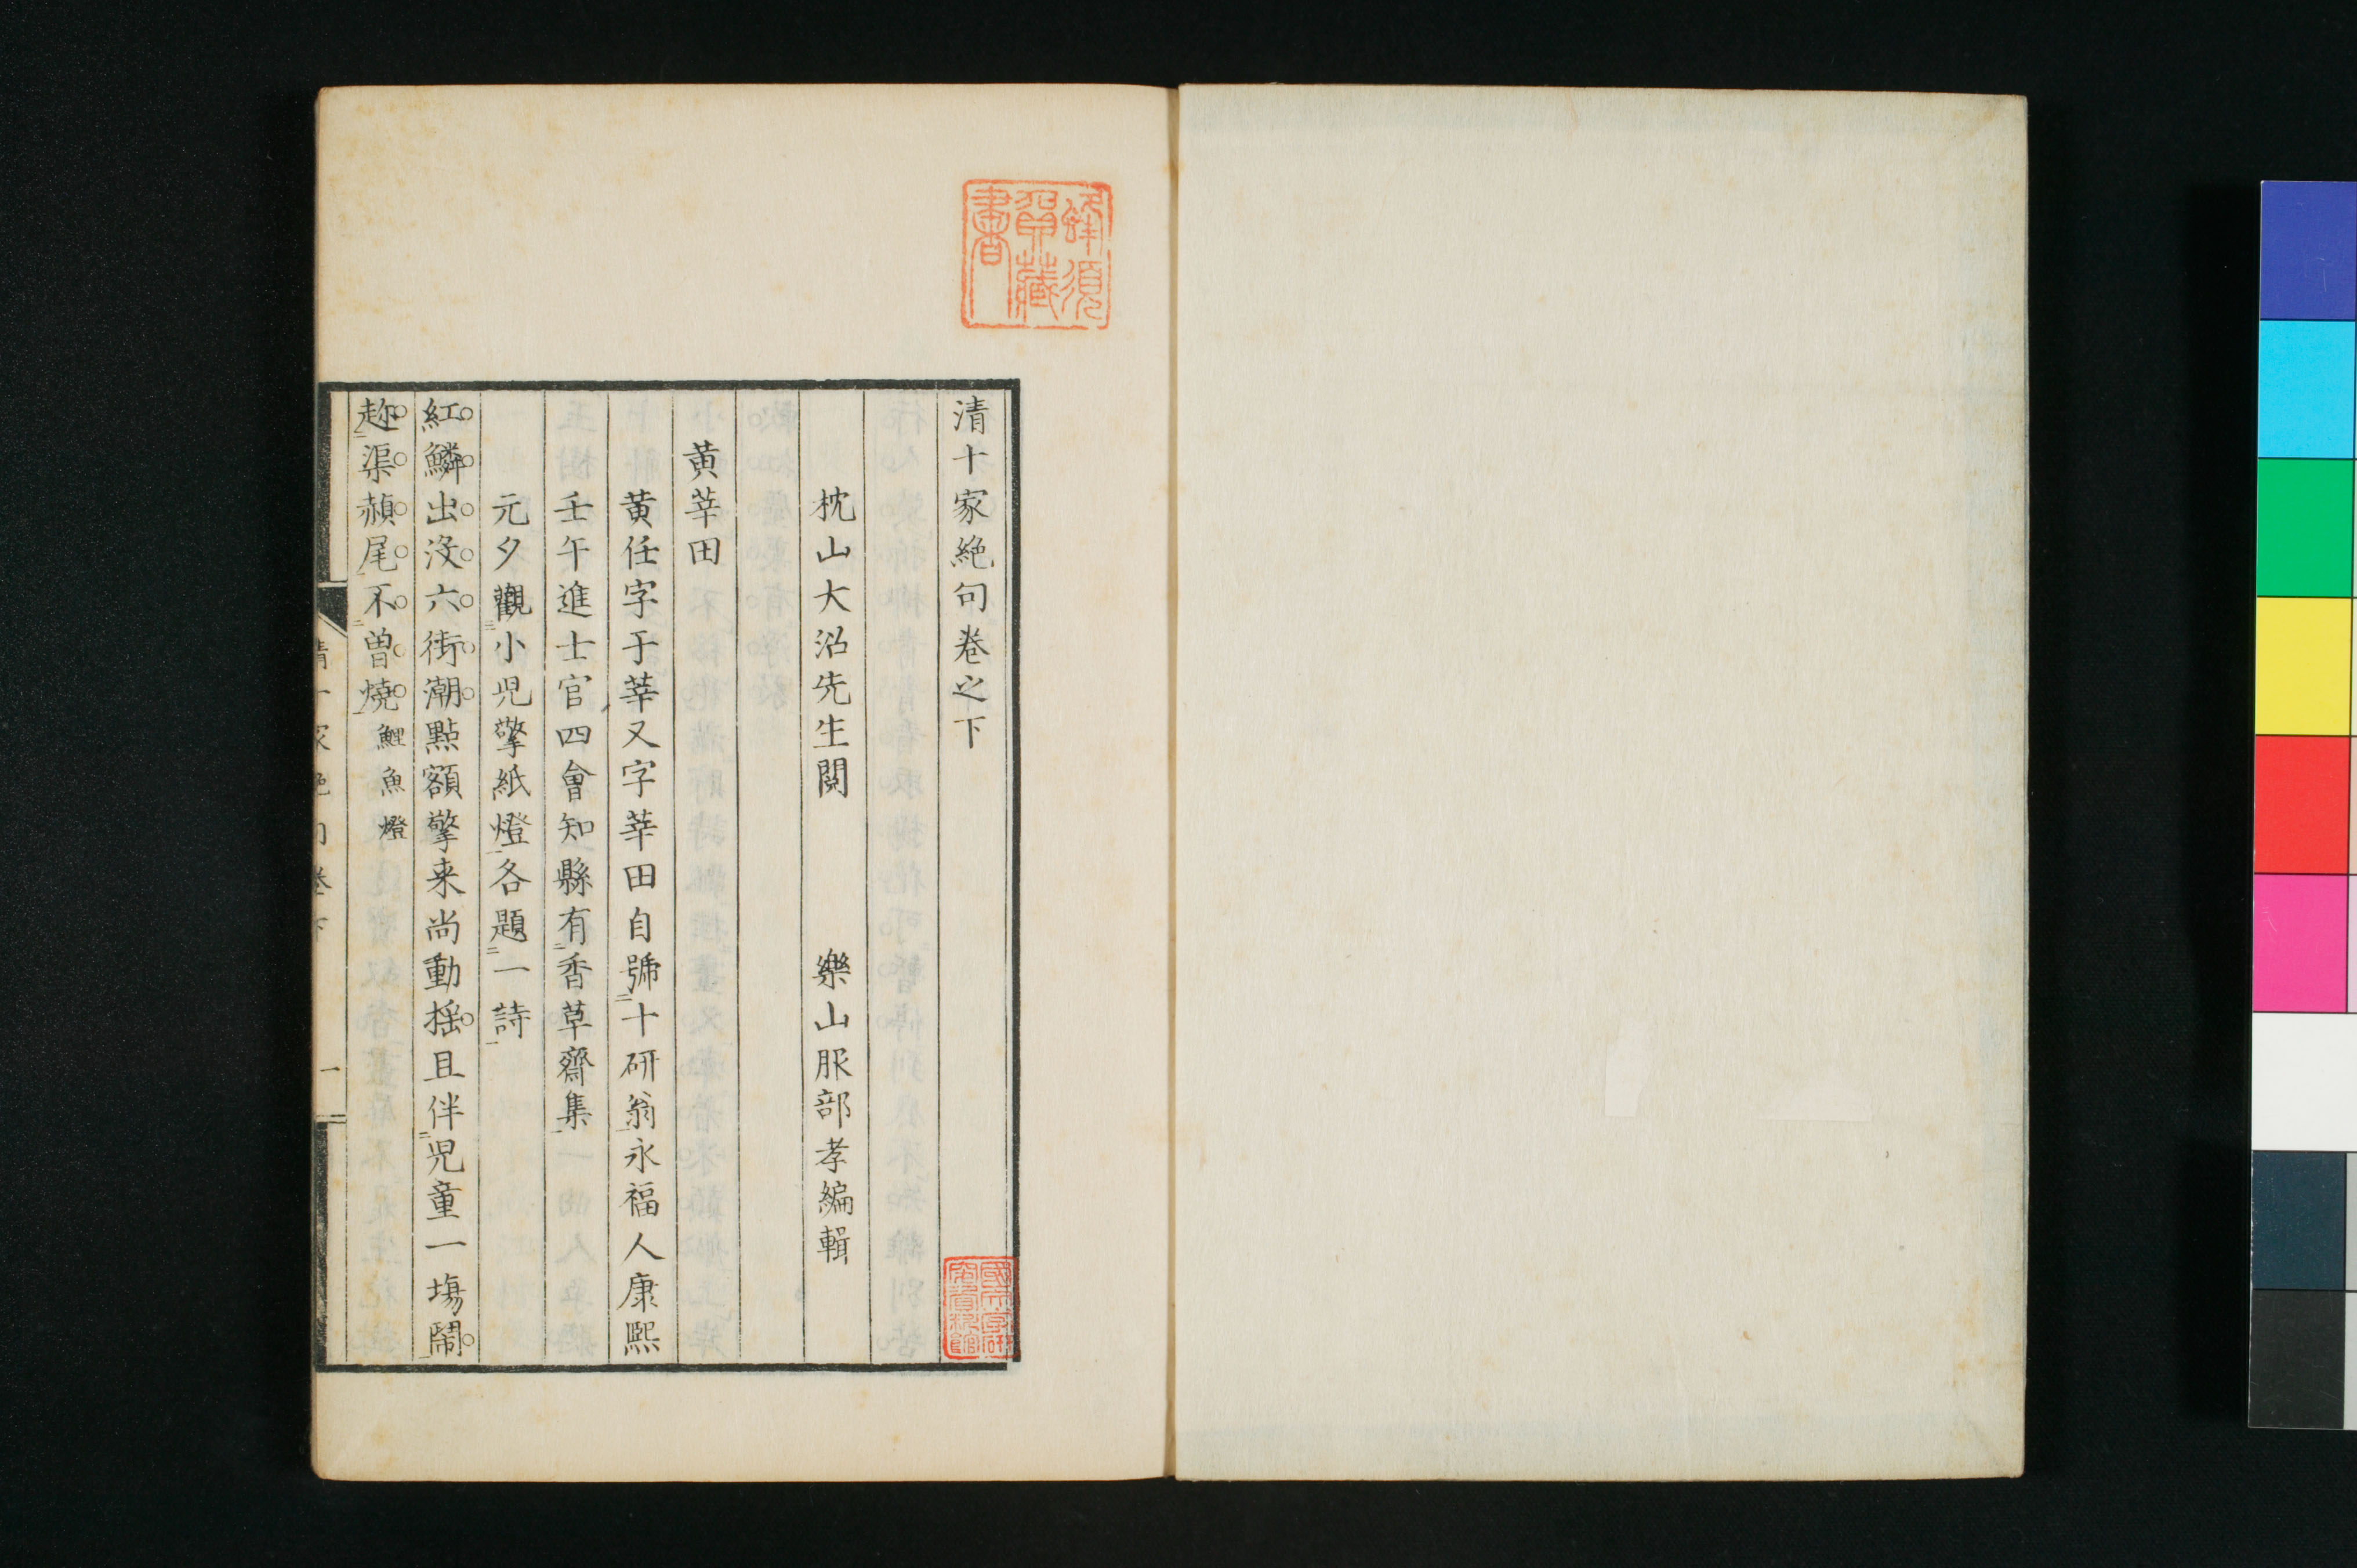 清十家絶句卷之下
枕山大沼先生閲　樂山服部孝編輯
黄莘田
黄任字于莘又字莘田自號十研翁永福人康熙
壬午進士官四會知縣有香草齋集
元夕觀小児擎紙燈各題一詩
紅鱗出没六街潮點額擎来尚動揺且伴児童一塲鬧
趂渠赬尾不曽燒鯉魚燈
清十家絶句卷下　一
蜂須賀藏書